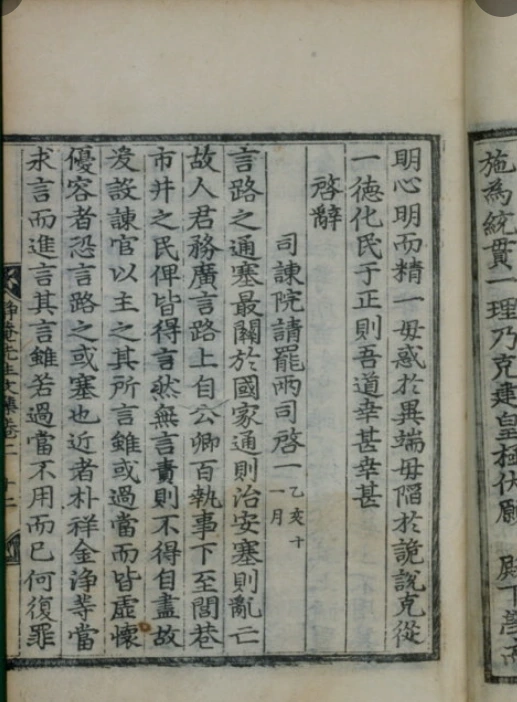 施爲統貫一理乃克建皇極伏願 殿下學而
明心明而精一毋惑於異端毋陷於詭說克從
一德化民于正則吾道幸甚幸甚
啓辭
司諫院請罷兩司啓一 乙亥十一月
言路之通塞最關於國家通則治安塞則亂亡
故人君務廣言路上自公卿百執事下至閭巷
市井之民俾皆得言然無言責則不得自盡故
爰設諫官以主之其所言雖或過當而皆虛懷
優容者恐言路之或塞也近者朴祥金淨等當
求言而進言其言雖若過當不用而已何復罪
靜菴先生文集卷二 十二